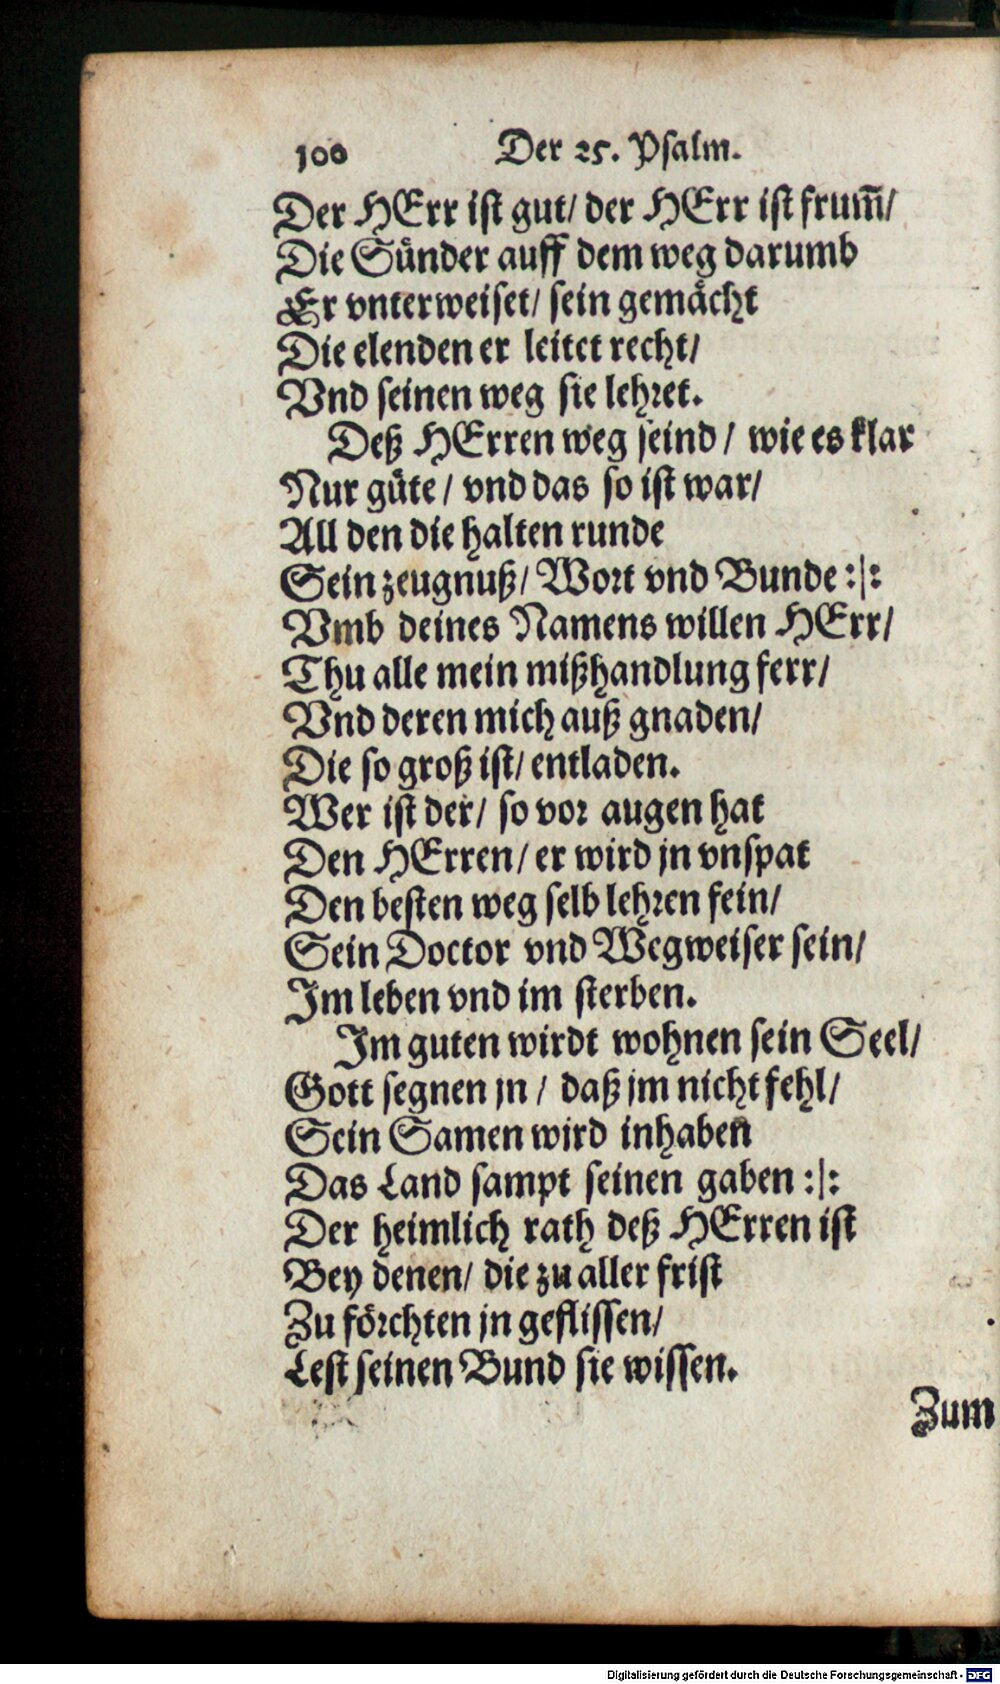 100 Der 25. Psalm.
Der HErr ist gut/ der HErr ist frum̃/
Die Sünder auff dem weg darumb
Er vnterweiset/ sein gemächt
Die elenden er leitet recht/
Vnd seinen weg sie lehret.
Deß HErren weg seind / wie es klar
Nur güte / vnd das so ist war/
All den die halten runde
Sein zeugnuß/ Wort vnd Bunde :|:
Vmb deines Namens willen HErr/
Thu alle mein mißhandlung ferr/
Vnd deren mich auß gnaden/
Die so groß ist/ entladen.
Wer ist der/ so vor augen hat
Den HErren/ er wird jn vnspat
Den besten weg selb lehren fein/
Sein Doctor vnd Wegweiser sein/
Im leben vnd im sterben.
Im guten wirdt wohnen sein Seel/
Gott segnen jn / daß jm nicht fehl/
Sein Samen wird inhaben
Das Land sampt seinen gaben :|:
Der heimlich rath deß HErren ist
Bey denen/ die zu aller frist
Zu förchten jn geflissen/
Lest seinen Bund sie wissen.
Zum
Digitalisierung gefördert durch die Deutsche Forschungsgemeinschaft - DFG